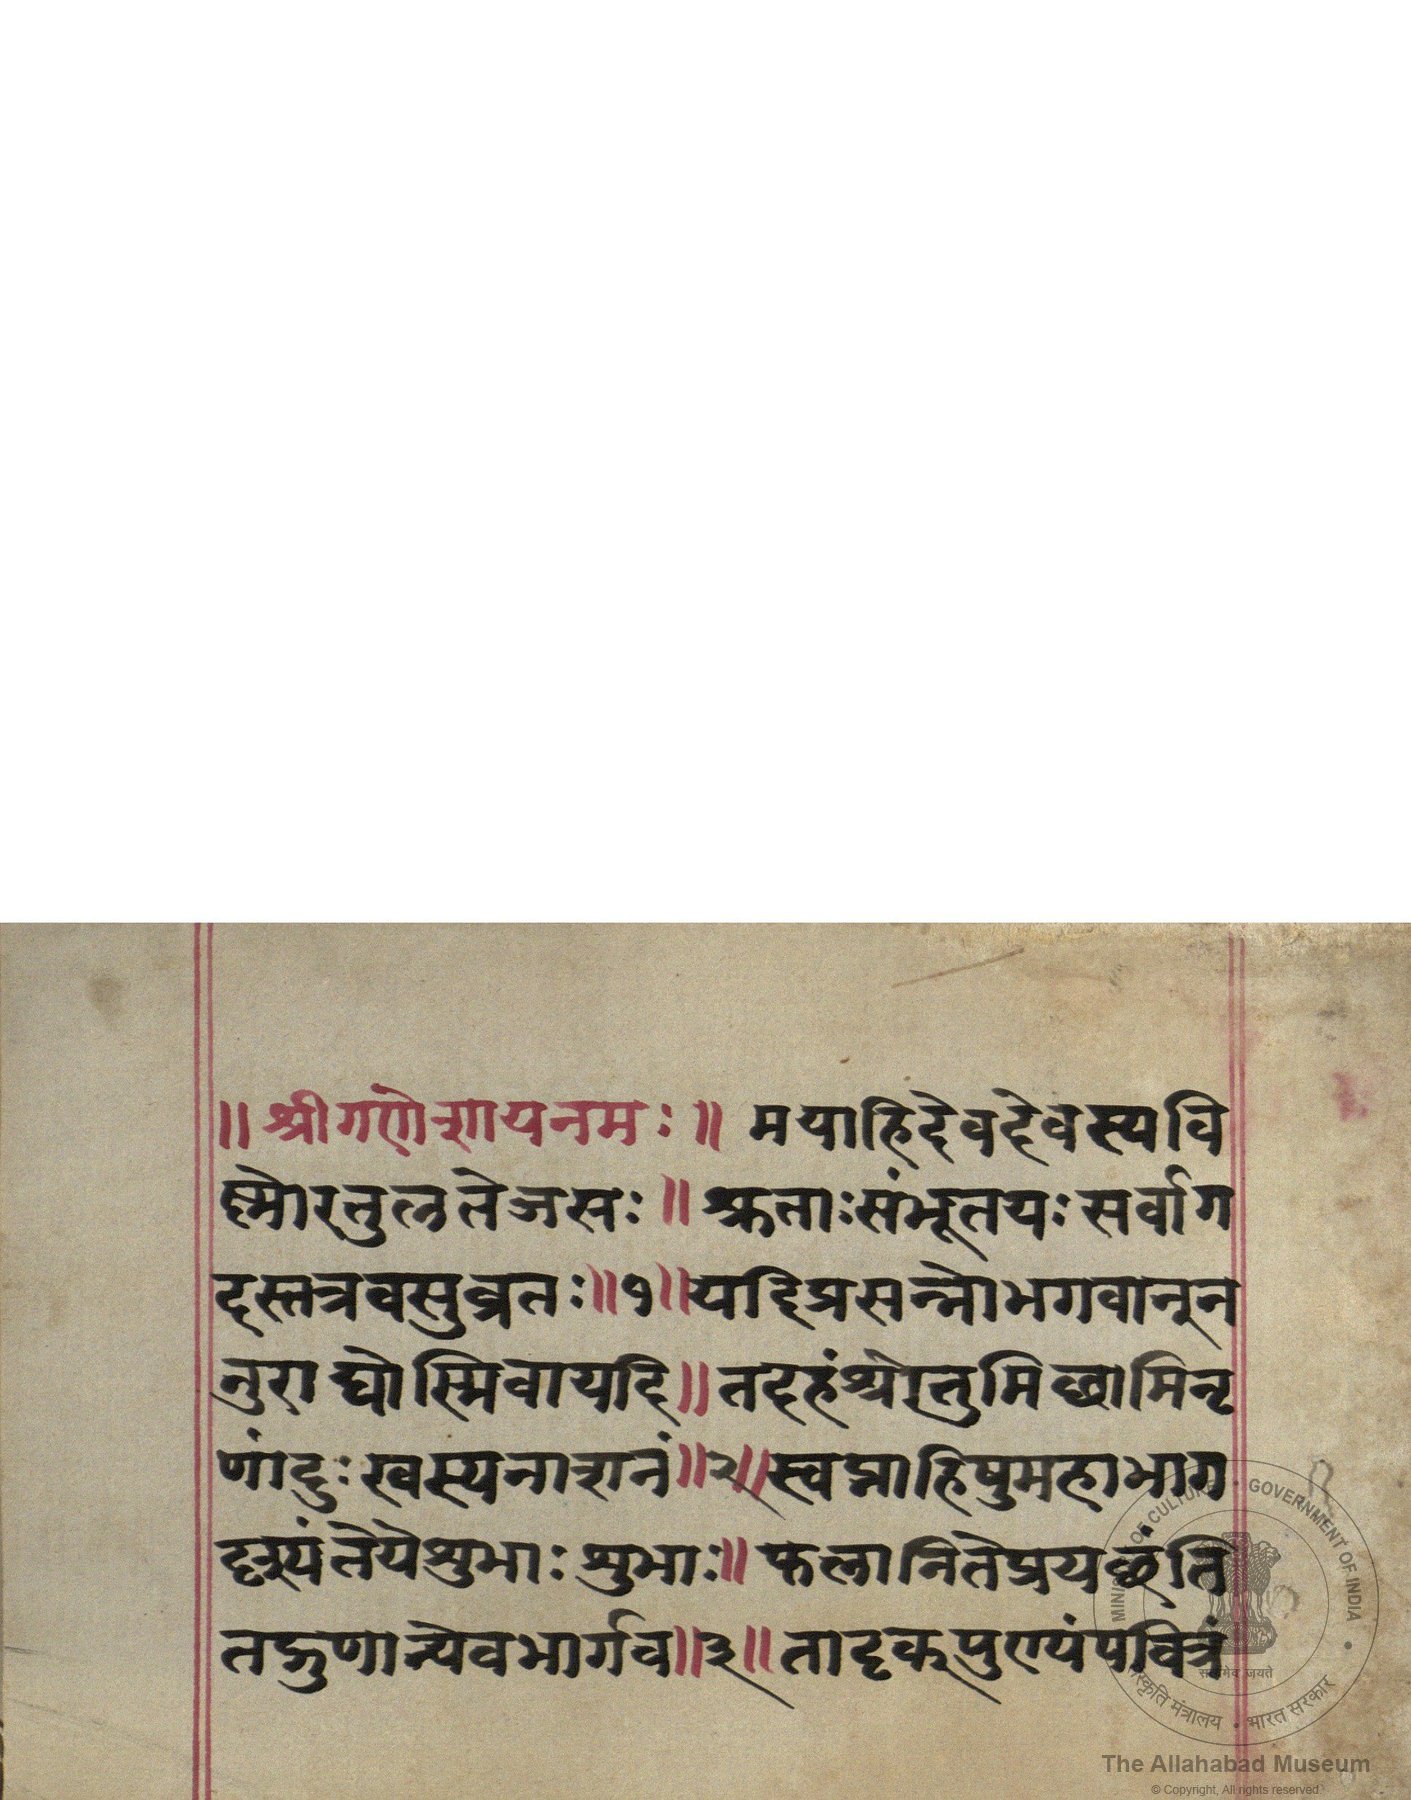 ॥ श्रीगणेशायनमः ॥ मयाहिदेवदेवस्यवि
ष्णोरतुलतेजसः ॥ श्रुताःसंभूतयः सर्वाग
दस्तत्रवसुव्रतः ॥ १ ॥ यदिप्रसन्नोभगवानून
नुराद्योस्मिवायदि ॥ तदहंश्रोतुमिछामिनृ
णांदुःखस्यनाशनं ॥ २ ॥ स्वप्नाहिषुमहाभाग
दृश्यंतेयेशुभाः शुभाः ॥ फलानितेप्रयछंति
तद्गुणान्येवभार्गव ॥ ३ ॥ तादृक्पुण्यंपवित्रं
MINISTRY OF CULTURE • GOVERNMENT OF INDIA
सत्यमेव जयते
संस्कृति मंत्रालय • भारत सरकार
The Allahabad Museum
© Copyright, All rights reserved.